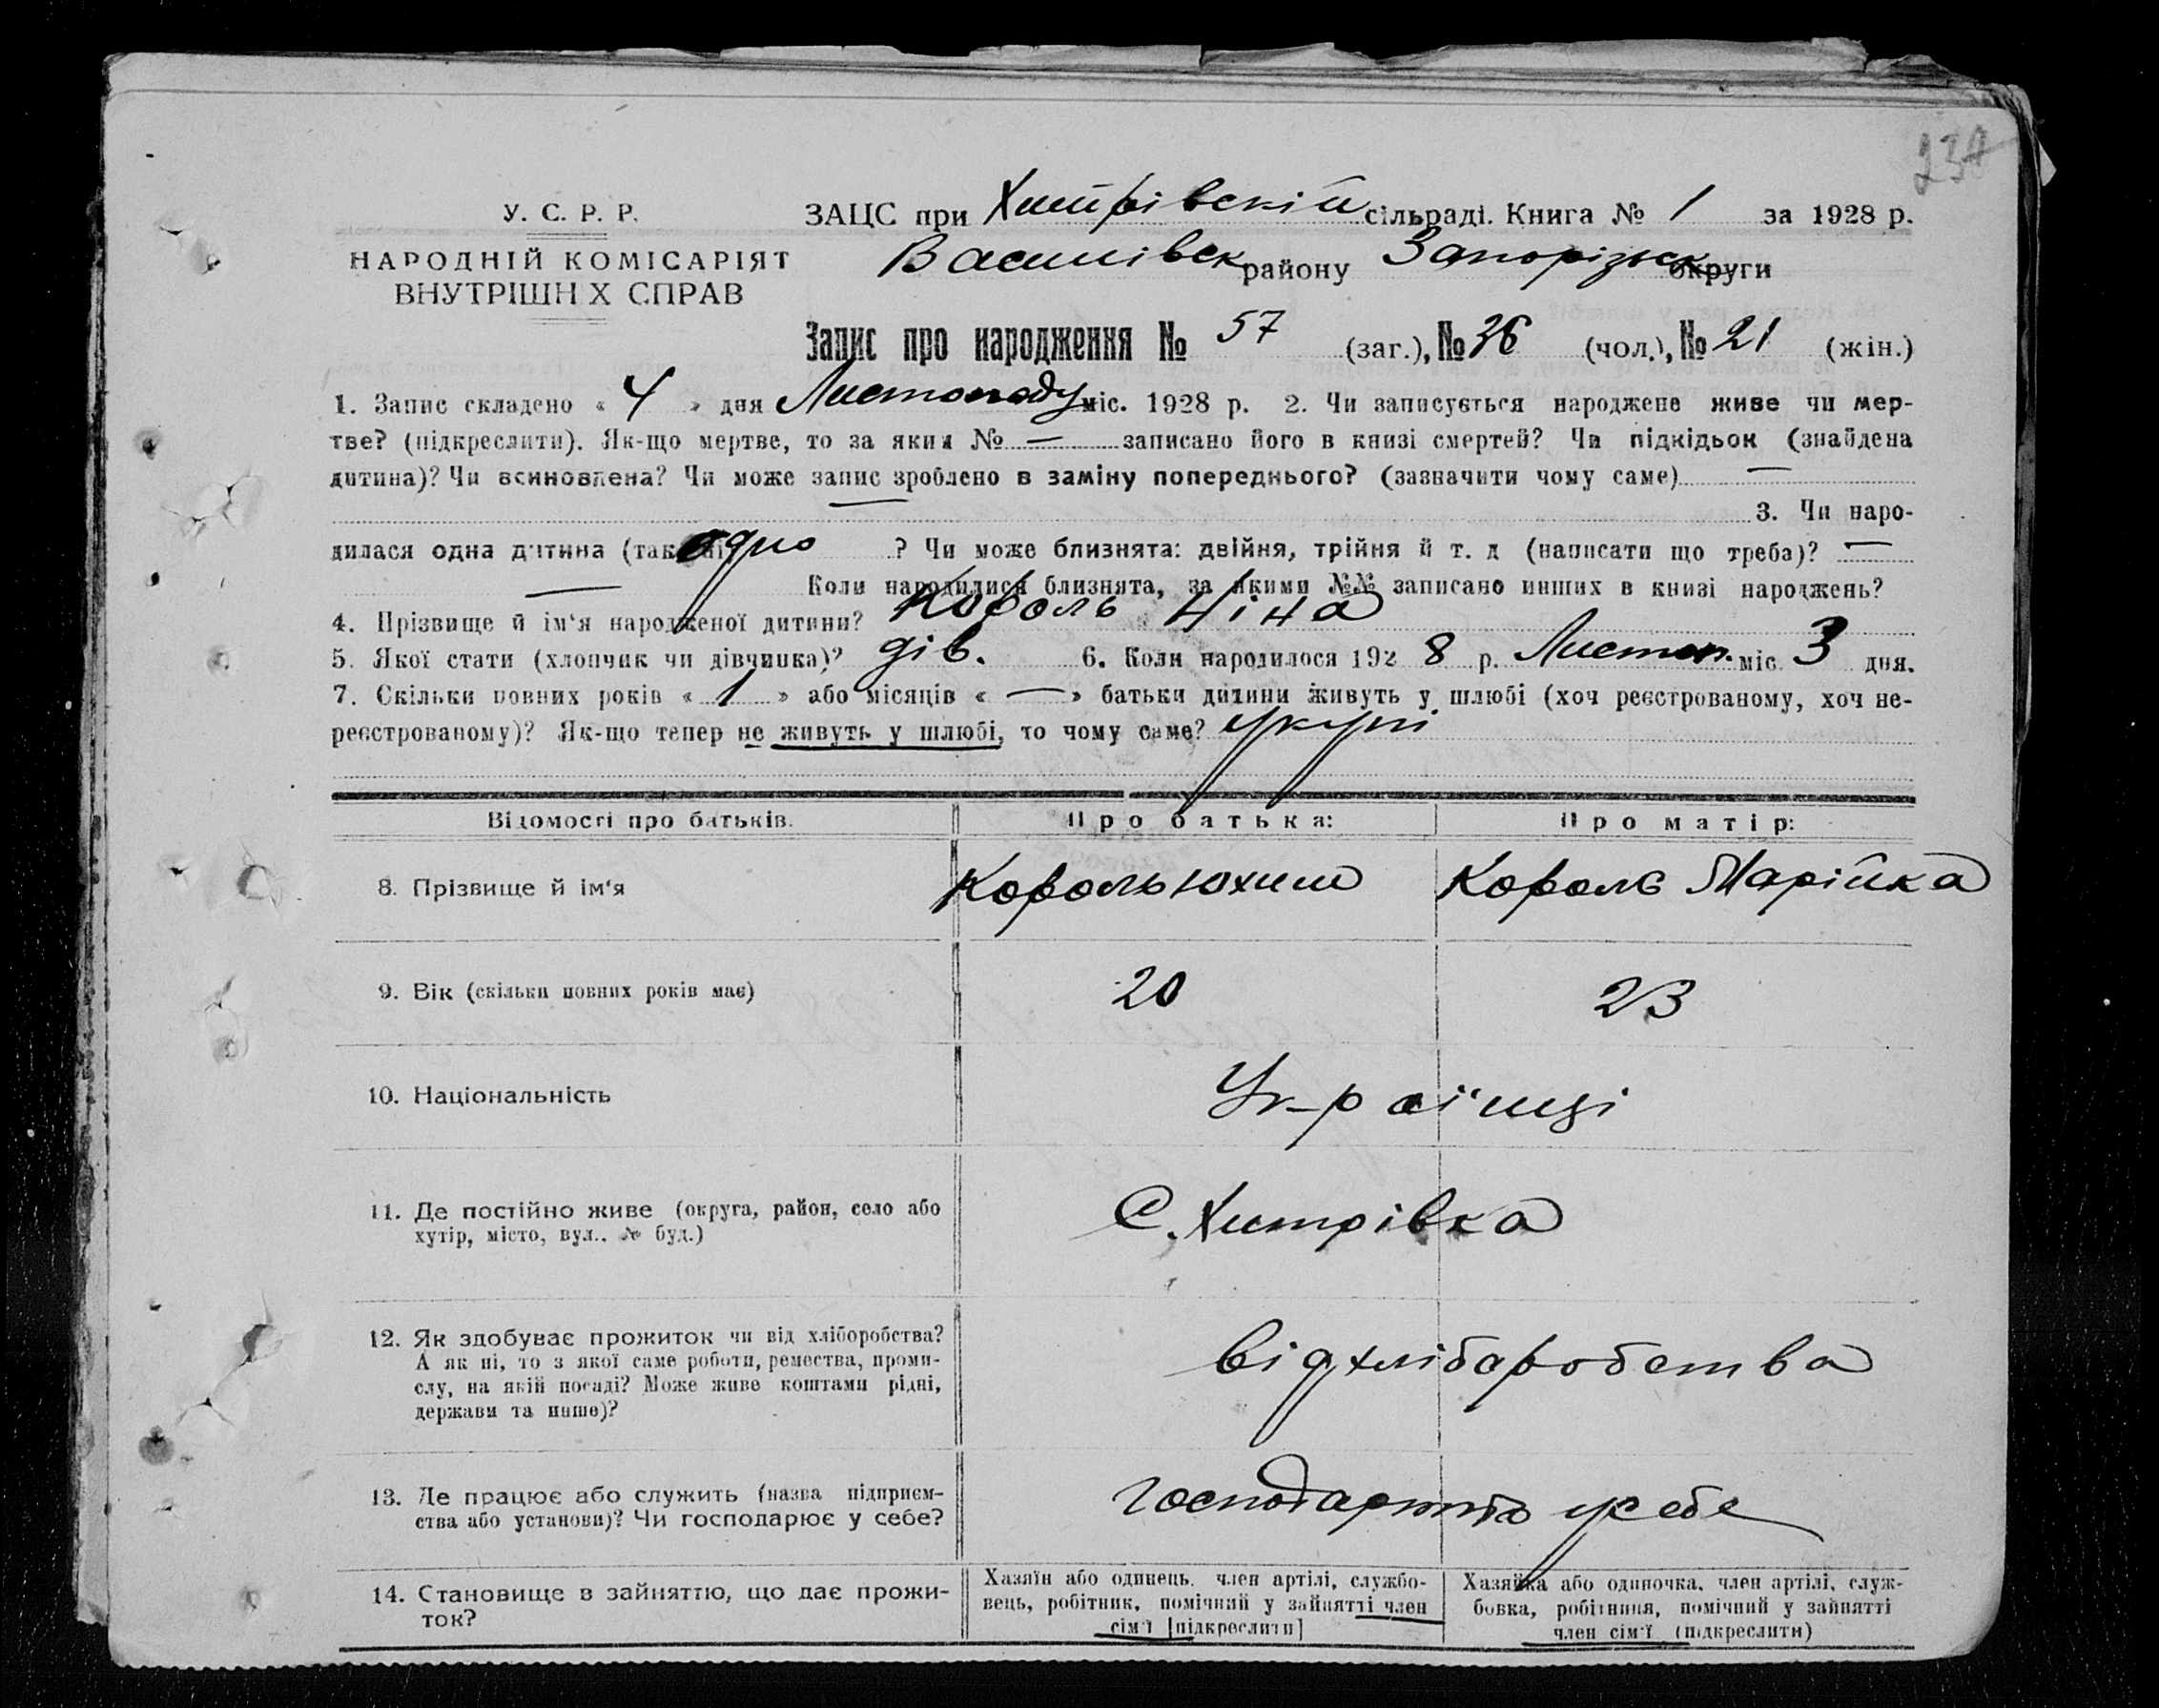 237
У. С. Р. Р.
НАРОДНІЙ КОМІСАРІЯТ
ВНУТРІШН Х СПРАВ
ЗАЦС при Хитрівській сільраді. Книга № 1 за 1928 р.
Василівськ району Запорізьк округи
Запис про народження № 57 (заг.), № 36 (чол.), № 21 (жін.)
1. Запис складено « 4 » дня Листопаду міс. 1928 р. 2. Чи записується народжене живе чи мер-
тве? (підкреслити). Як-що мертве, то за яким № — записано його в книзі смертей? Чи підкідьок (знайдена
дитина)? Чи всиновлена? Чи може запис зроблено в заміну попереднього? (зазначити чому саме) —
— 3. Чи наро-
дилася одна дитина (так одно ? Чи може близнята: двійня, трійня й т. д (написати що треба)? —
— Коли народилися близнята, за якими №№ записано инших в книзі народжень?
4. Прізвище й ім'я народженої дитини? Король Ніна
5. Якої стати (хлопчик чи дівчинка)? дів. 6. Коли народилося 192 8 р. Листоп. міс 3 дня.
7. Скільки повних років « 1 » або місяців « — » батьки дитини живуть у шлюбі (хоч реєстрованому, хоч не-
реєстрованому)? Як-що тепер не живуть у шлюбі, то чому саме? укупі
Відомості про батьків. Про батька: Про матір:
8. Прізвище й ім'я Король Юхим Король Марійка
9. Вік (скільки повних років має) 20 23
10. Національність Українці
11. Де постійно живе (округа, район, село або
хутір, місто, вул.. № буд.) С. Хитрівка
12. Як здобуває прожиток чи від хліборобства?
А як ні, то з якої саме роботи, ремества, проми-
слу, на якій посаді? Може живе коштами рідні,
держави та инше)? від хлібаробства
13. Де працює або служить (назва підприєм-
ства або установи)? Чи господарює у себе? господарюють у себе
14. Становище в зайняттю, що дає прожи-
ток?
Хазяїн або одинець. член артілі, службо-
вець, робітник, помічний у зайнятті член
сім'ї [підкреслити]
Хазяйка або одиночка, член артілі, служ-
бовка, робітниця, помічний у зайнятті
член сім'ї (підкреслити)